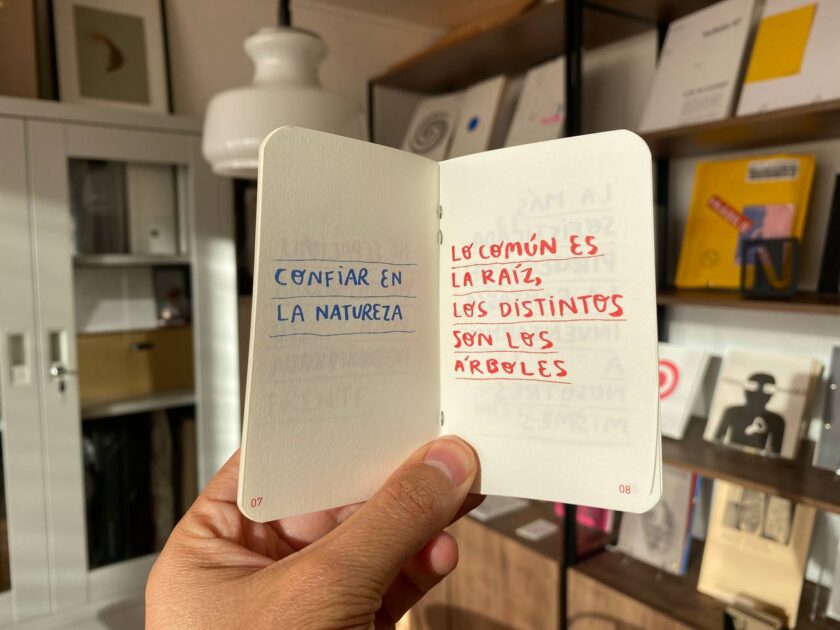 CONFIAR EN
LA NATUREZA
07
LO COMÚN ES
LA RAÍZ,
LOS DISTINTOS
SON LOS
ÁRBOLES
08